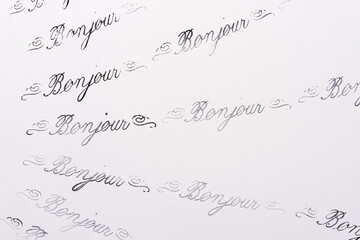 Bonjour
Bonjour
Bonjour
Bonjour
Bonjour
Bonjour
Bonjour
Bonjour
Bonjour
Bon